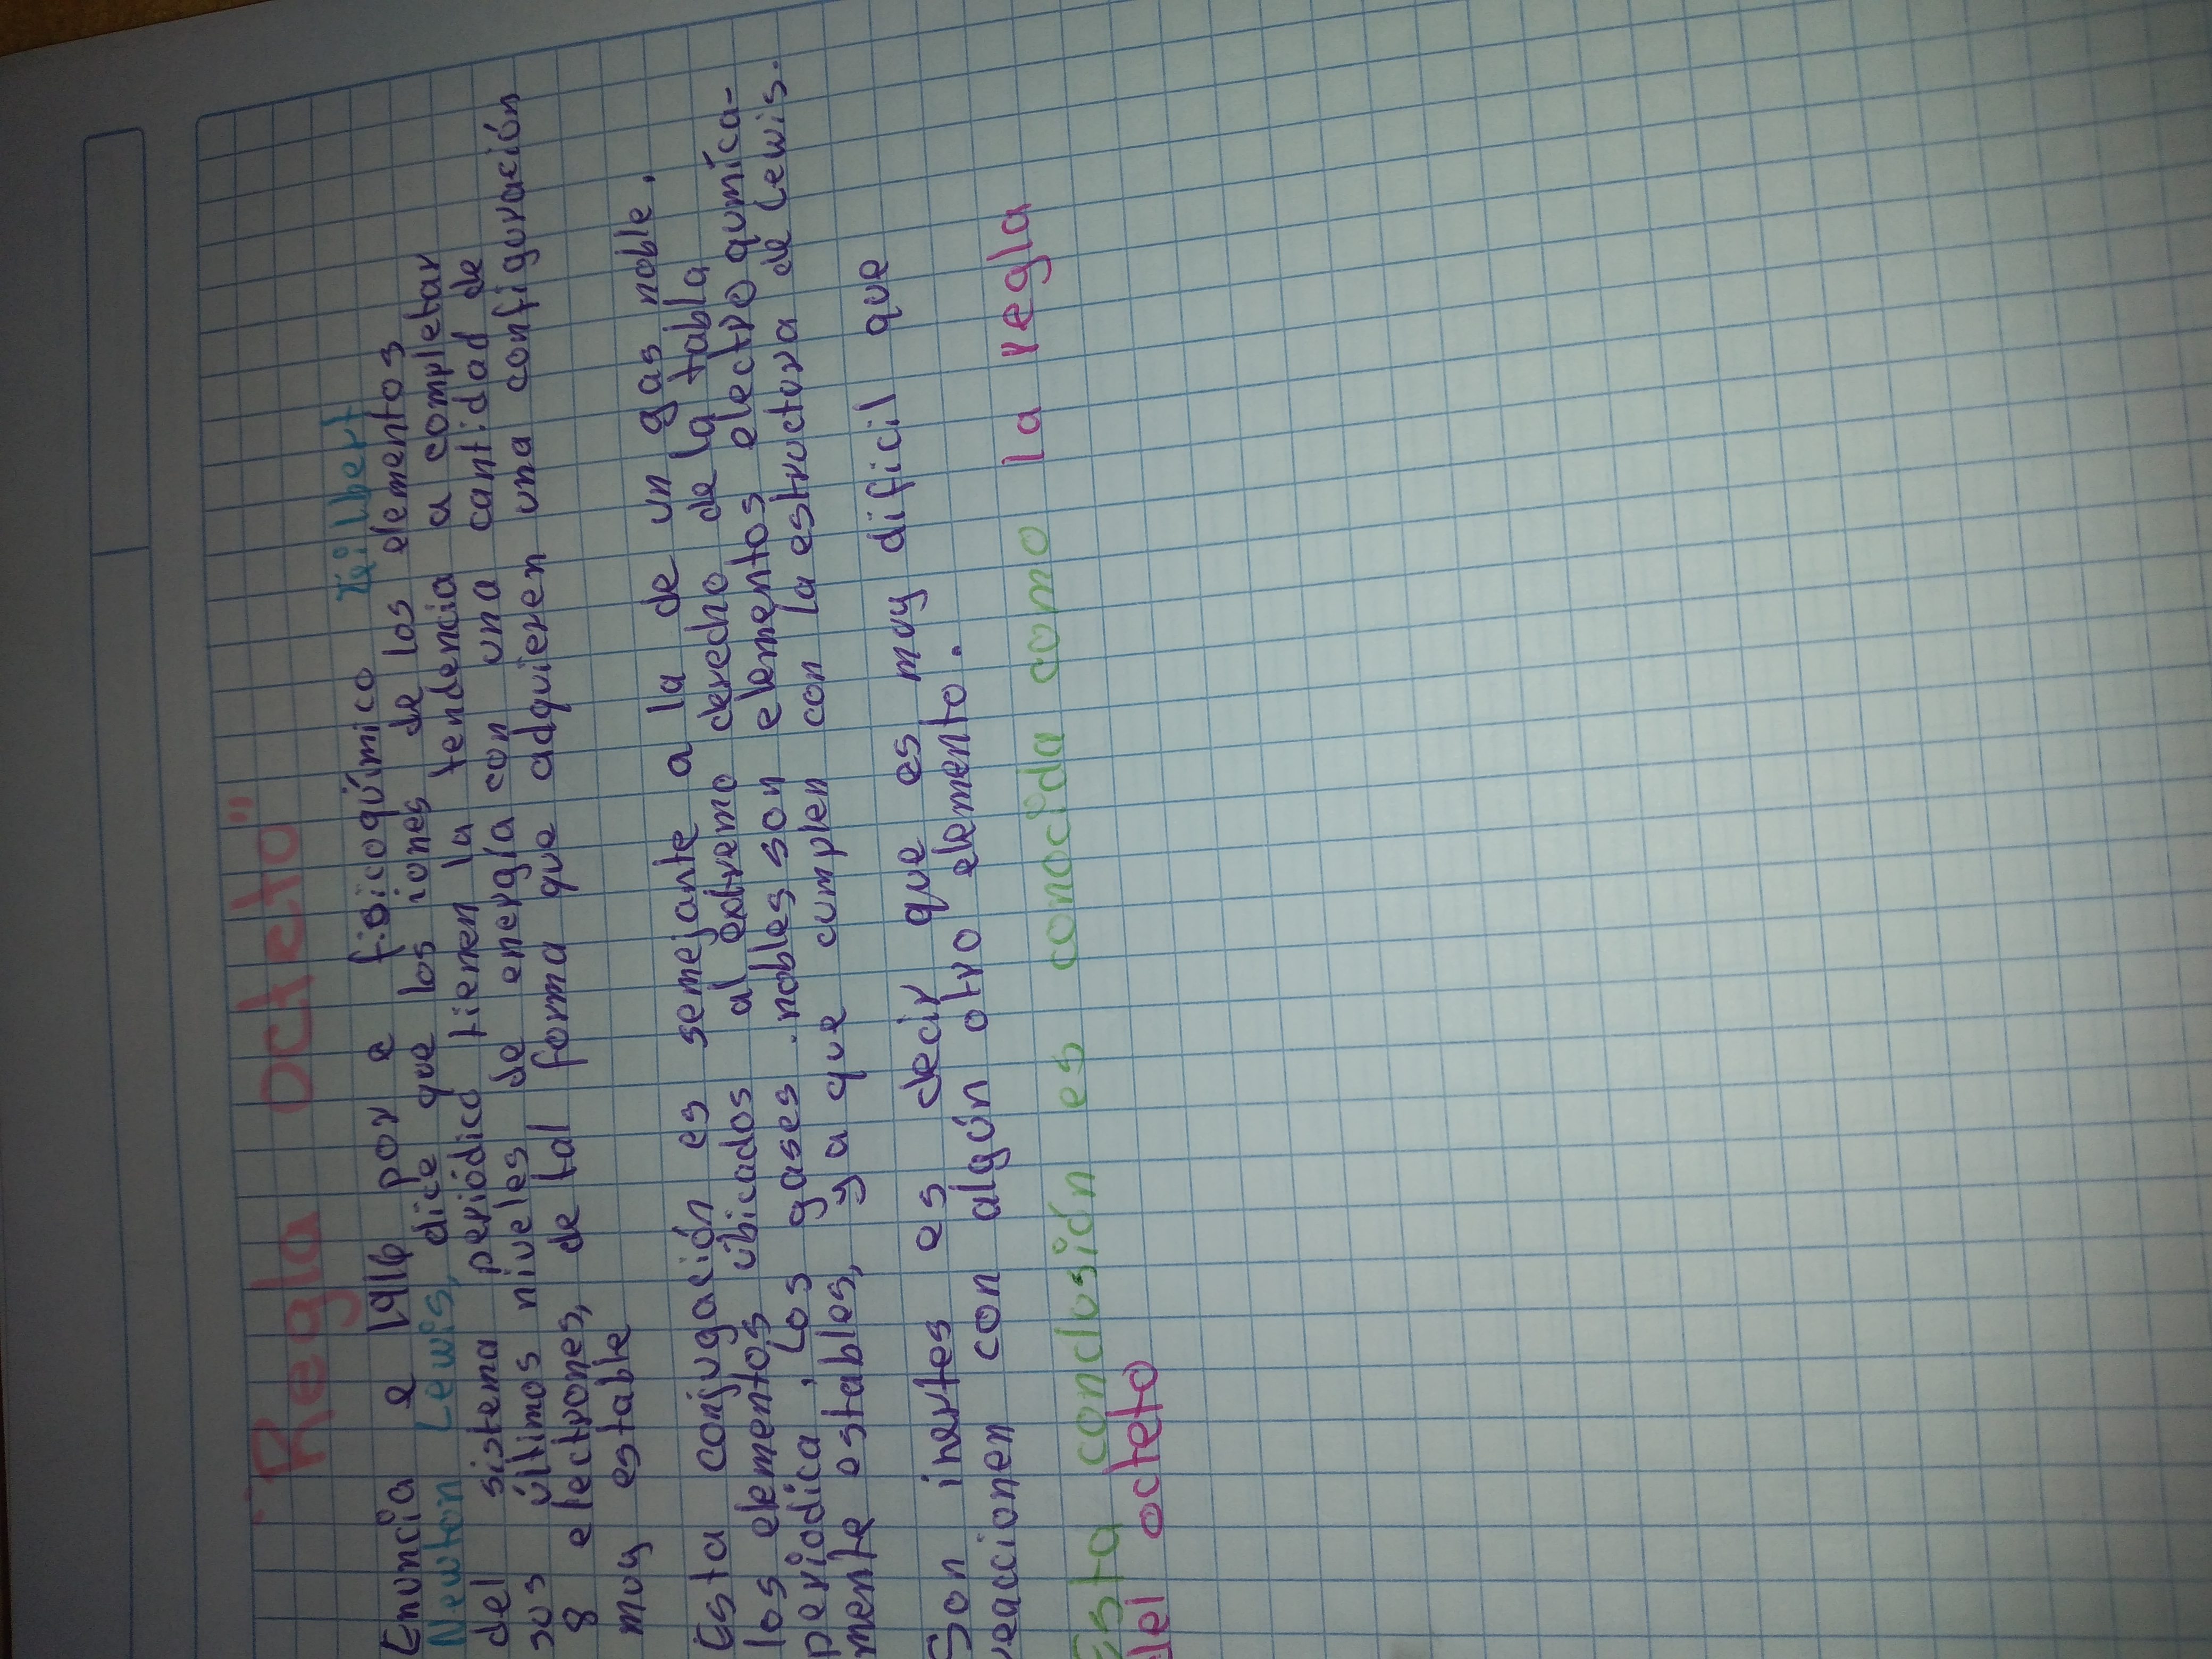 "Regla octeto"
Enuncia e 1916 por e fisicoquímico Gilbert
Newton Lewis, dice que los iones de los elementos
del sistema periódico tienen la tendencia a completar
sus últimos niveles de energía con una cantidad de
8 electrones, de tal forma que adquieren una configuración
muy estable
Esta conjugación es semejante a la de un gas noble,
los elementos úbicados al extremo derecho de la tabla
periodica, Los gases nobles son elementos electro qumíca-
mente estables, ya que cumplen con la estructura de Lewis.
Son inertes es decir que es muy dificil que
reaccionen con algún otro elemento.
Esta conclusión es conocida como la regla
del octeto